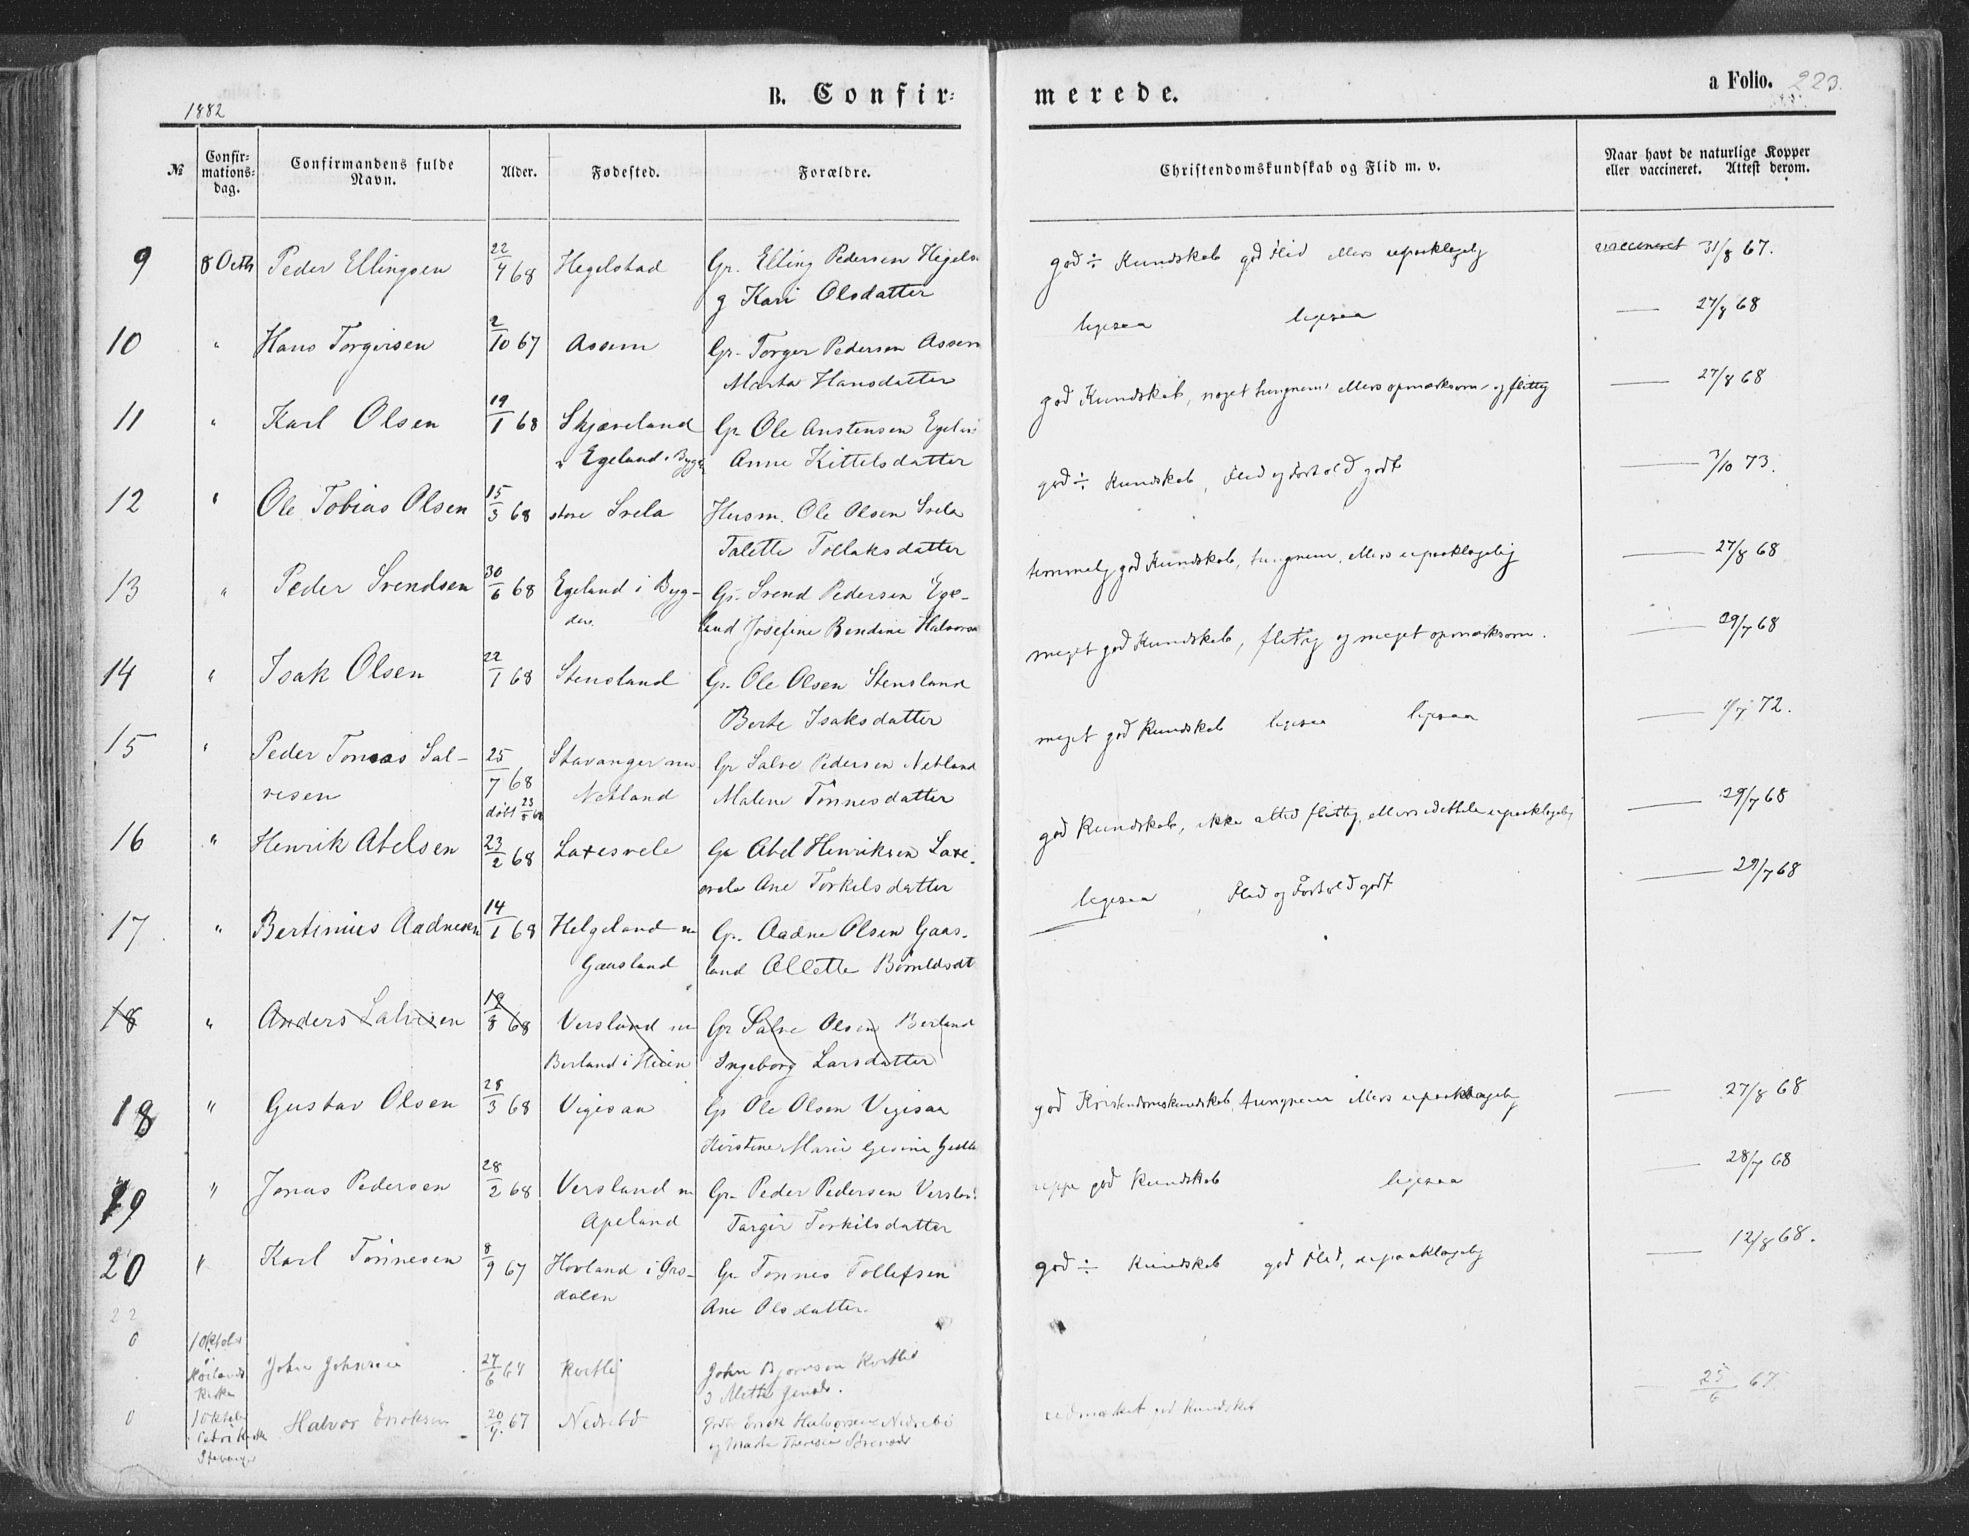 1882
B. Confir=
merede.
a Folio. 223.
№
Confir=
mations=
dag.
Confirmandens fulde
Navn.
Alder.
Fødested.
Forældre.
Christendomskundskab og Flid m. v.
Naar havt de naturlige Kopper
eller vaccineret. Attest derom.
9 8 Octb Peder Ellingsen 22/4 68 Hegelstad Gr. Elling Pedersen Hegels
g Kari Olsdatter
god ÷ Kundskab god Flid ellers upaaklagelig vaccineret 31/8 67.
10 " Hans Torgersen 2/10 67 Assem Gr. Torger Pedersen Assem
Marta Hansdatter
ligesaa ligesaa — 27/8 68
11 " Karl Olsen 19/1 68 Skjæveland Gr Ole Anstensen Egelan
Egeland i Bygd Anne Kittelsdatter
god Kundskab, noget tungnem, ellers opmærksom og flittig — 27/8 68
12 " Ole Tobias Olsen 15/3 68 store Svela Husm. Ole Olsen Svela
Talette Tollaksdatter
god ÷ Kundskab, Flid og Forhold godt — 3/10 73.
13 " Peder Svendsen 30/6 68 Egeland i Byg- Gr. Svend Pedersen Ege-
den. land Josefine Bendine Halvors
temmelig god Kundskab, tungnem, ellers upaaklagelig — 27/8 68
14 " Isak Olsen 22/1 68 Stensland Gr. Ole Olsen Stensland
Berte Isaksdatter
meget god Kundskab, flittig og meget opmærksom. — 29/7 68
15 " Peder Tomas Sal- 25/7 68 Stavanger nu Gr Salve Pedersen Netland
vesen døbt Netland Malene Tønnesdatter
meget god Kundskab ligesaa ligesaa — 72.
16 " Henrik Abelsen 23/2 68 Laxesvele Gr Abel Henriksen Laxe-
svela Ane Torkilsdatter
god Kundskab, ikke altid flittig, ellers upaaklagelig — 29/7 68
17 " Bertinius Aadnesen 14/1 68 Helgeland nu Gr. Aadne Olsen Gaas-
Gaasland land Allette
ligesaa, Flid og Forhold godt — 29/7 68
18 " Anders Salvesen 19/8 68 Versland nu Gr Salve Olsen Berland
Berland i Heien Ingeborg Larsdatter
18 " Gustav Olsen 28/3 68 Vigesaa Gr Ole Olsen Vigesaa
Kirstine Marie
god Kristendomskundskab, tungnem ellers upaaklagelig — 27/8 68
19 " Jonas Pedersen 28/2 68 Versland nu Gr. Peder Pedersen Verslan
Apeland Targer Torkilsdatter
god Kundskab ligesaa — 28/7 68
20 " Karl Tønnesen 8/9 67 Hovland i Grø- Gr Tønnes Tollefsen
dalen Ane Olsdatter.
god ÷ Kundskab god Flid, upaaklagelig — 12/8 68.
22
0 1 Oktober John Johnsen 27/6 67 Kvitli John Bjørnsen Kvitli
Høilands
Kirke
25/6 67
0 1 Oktober Halvor Eriksen 67 Nedrebø Erik Halvorsen Nedrebø
Stavanger og Marta
god Kundskab